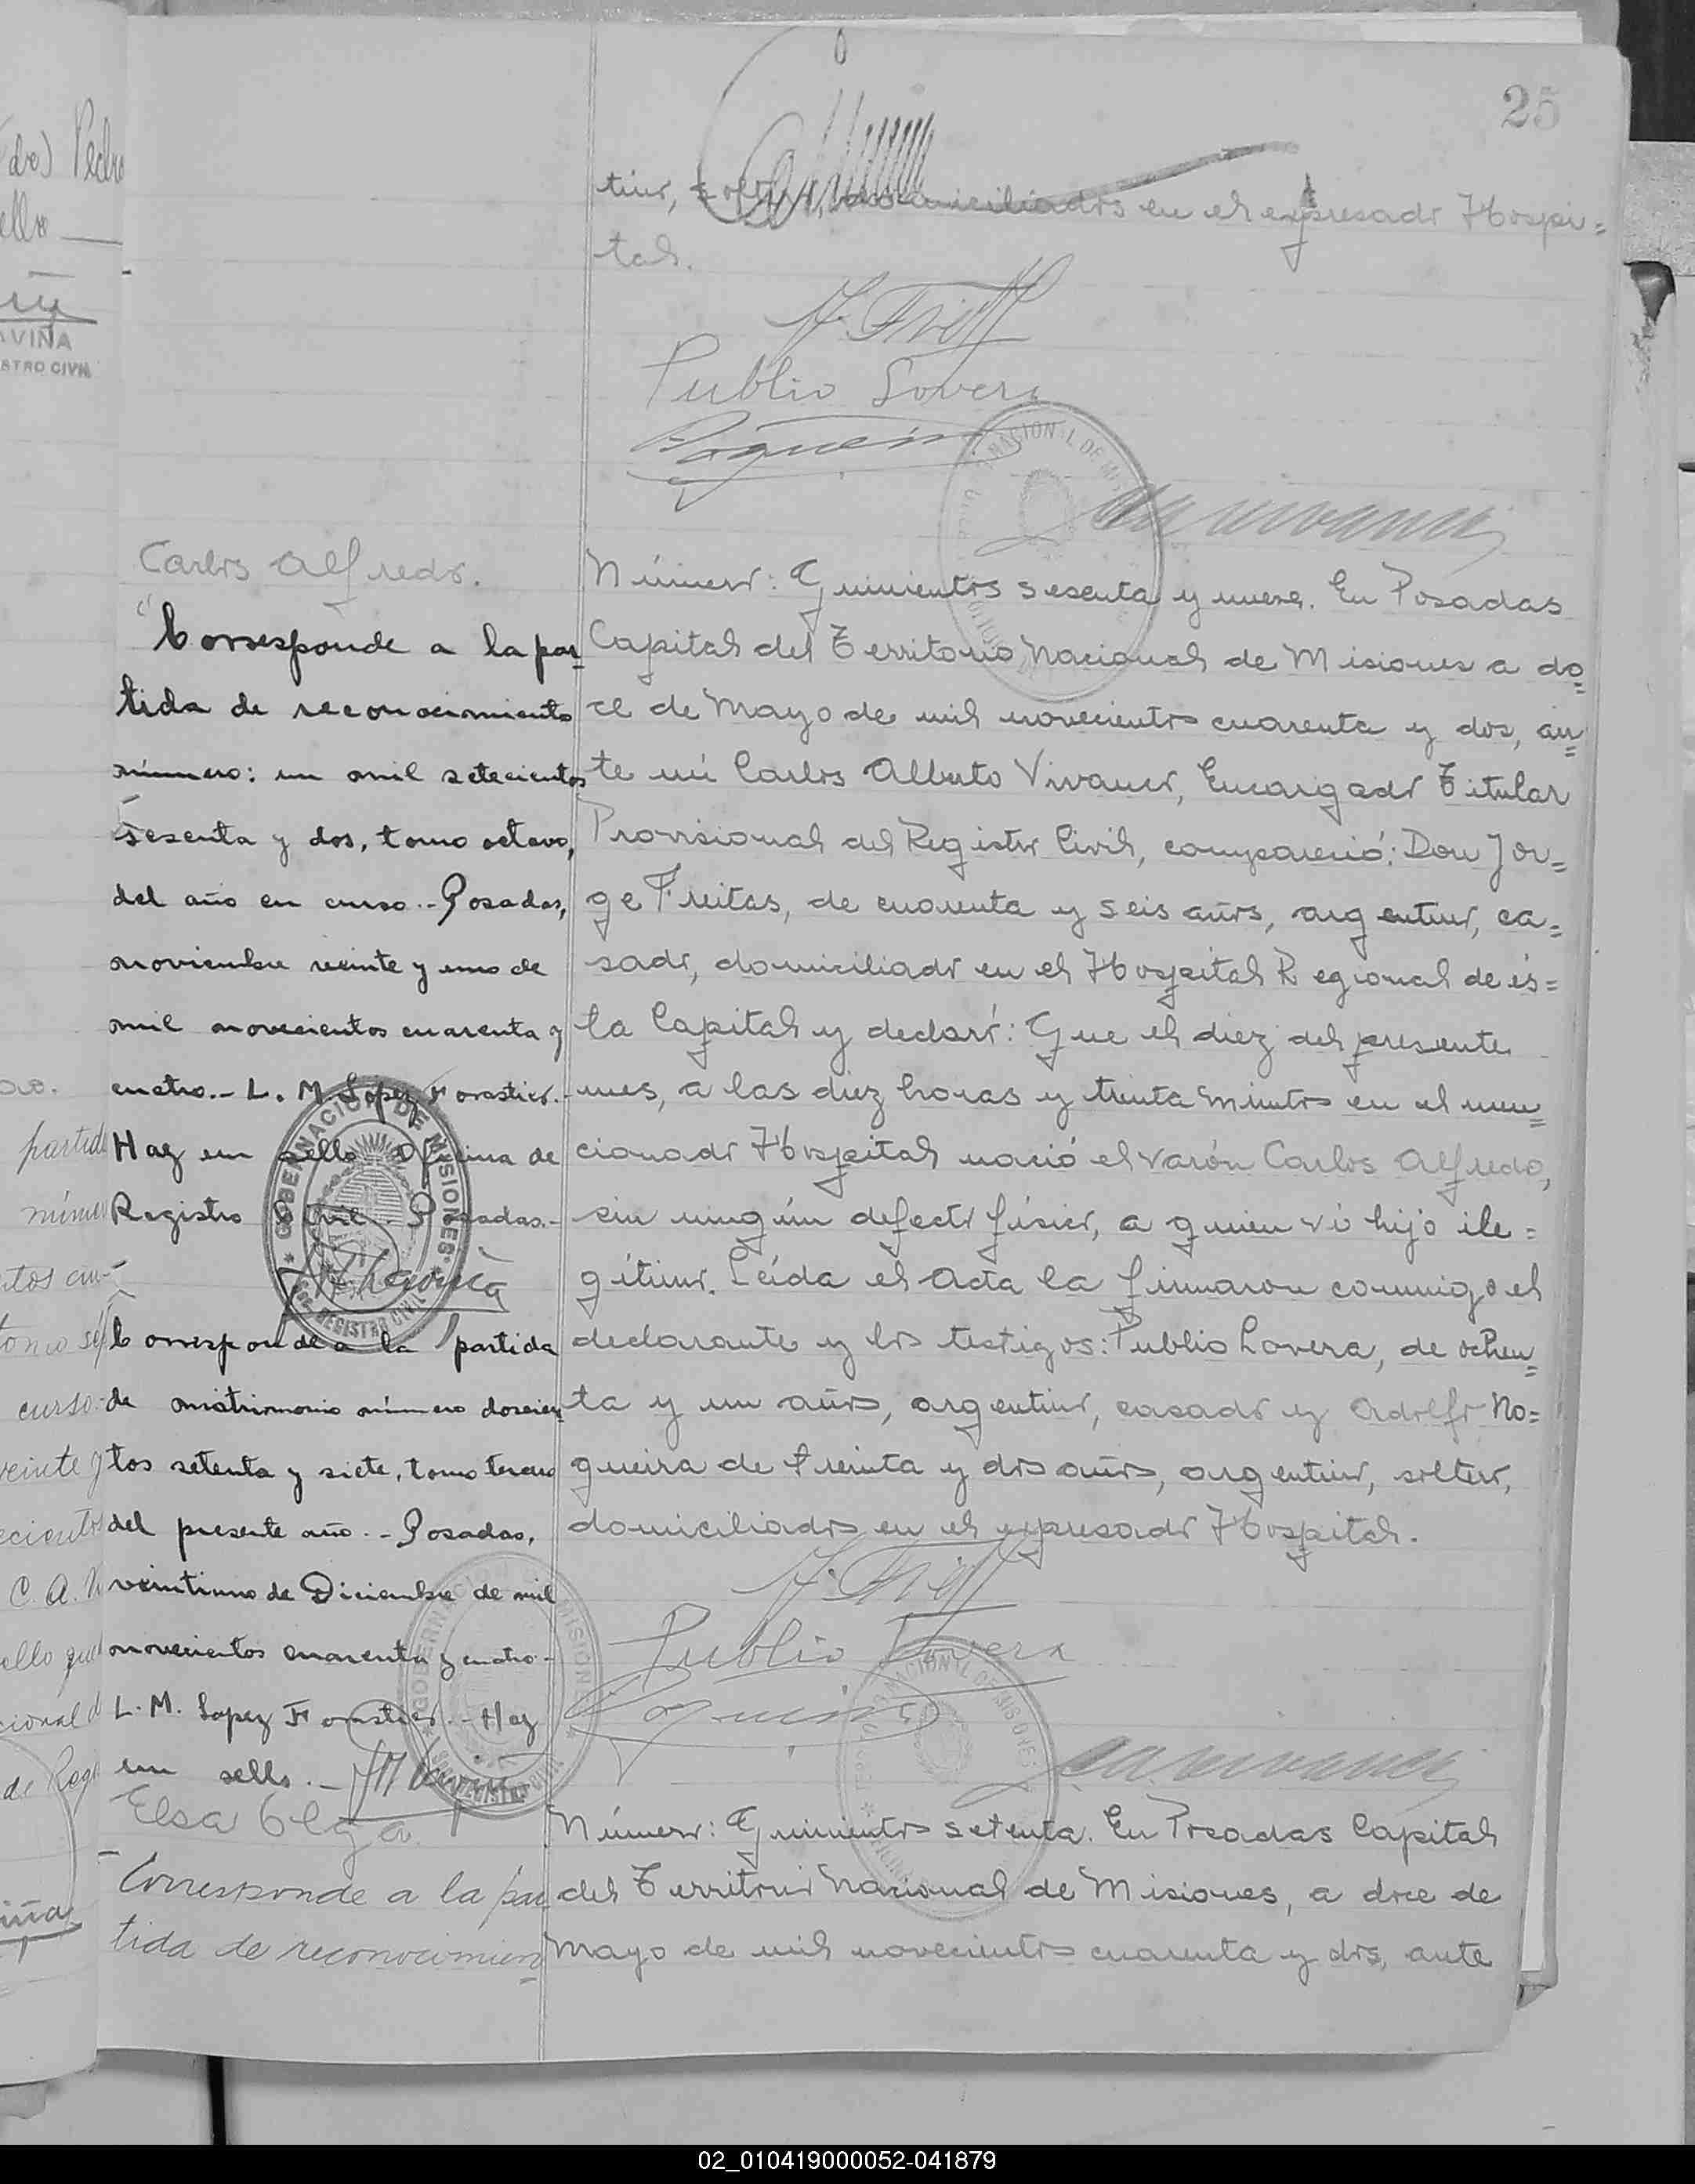 25
tino, soltero, domiciliados en el expresado Hospi=
tal.
Publio Lovera
Carlos Alfredo.
Número: Quinientos sesenta y nueve. En Posadas
Capital del Territorio Nacional de Misiones a do=
ce de Mayo de mil novecientos cuarenta y dos, an=
te mí Carlos Alberto Vivanco, Encargado Titular
Provisional del Registro Civil, compareció: Don Jor=
ge Freitas, de cuarenta y seis años, argentino, ca=
sado, domiciliado en el Hospital Regional de és=
ta Capital y declaró: Que el diez del presente
mes, a las diez horas y treinta minutos en el men=
cionado Hospital nació el varón Carlos Alfredo,
sin ningún defecto físico, a quien vi hijo ile=
gítimo. Leída el Acta la firmaron conmigo el
declarante y los testigos: Publio Lovera, de ochen=
ta y un años, argentino, casado y Adolfo No=
gueira de treinta y dos años, argentino, soltero,
domiciliados en el expresado Hospital.
Publio Lovera
Corresponde a la par
tida de reconocimiento
número: un mil setecientos
sesenta y dos, tomo octavo,
del año en curso.- Posadas,
noviembre veinte y uno de
mil novecientos cuarenta y
cuatro.- L. M. Lopez Forastier.-
Hay un sello Oficina de
Registro Civil - Posadas.-
GOBERNACION DE MISIONES
REGISTRO CIVIL
Corresponde a la partida
de matrimonio número doscien
tos setenta y siete, tomo tercero
del presente año.- Posadas,
veintiuno de Diciembre de mil
novecientos cuarenta y cuatro.-
L. M. Lopez Forastier.- Hay
un sello.-
Elsa Olga.
Corresponde a la par
tida de reconocimien=
Número: Quinientos setenta. En Posadas Capital
del Territorio Nacional de Misiones, a doce de
Mayo de mil novecientos cuarenta y dos, ante
02_010419000052-041879